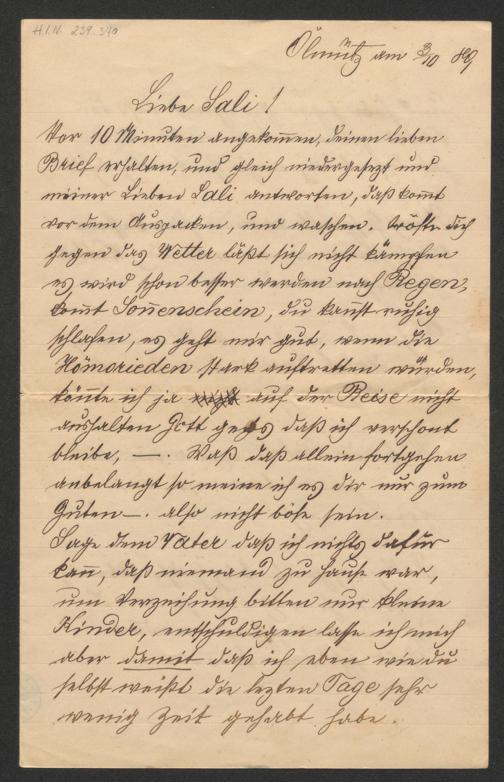 H.I.N. 239.340
Olmütz am 3/10 89
Liebe Sali!
Vor 10 Minuten angekommen, deinen lieben
Brief erhalten, und gleich niedergesetzt und
meiner Lieben Sali antworten, daß kom̄t
vor dem Auspacken, und waschen. tröste dich
gegen das Wetter läßt sich nicht kämpfen
es wird schon besser werden nach Regen,
kom̄t Son̄enschein, du kan̄st ruhig
schlafen, es geht mir gut, wenn die
Hömorieden stark auftretten würden,
kön̄te ich ja auf der Reise nicht
aushalten Gott gebs daß ich verschont
bleibe, —. Waß daß allein fortgehen
anbelangt so meine ich es dir nur zum
Guten —. also nicht böse sein.
Sage dem Vater daß ich nichts dafür
kan̄, daß niemand zu Hause war,
um Verzeihung bitten nur kleine
Kinder, entschuldigen lasse ich mich
aber damit daß ich eben wie du
selbst weißt die lezten Tage sehr
wenig Zeit gehabt habe.